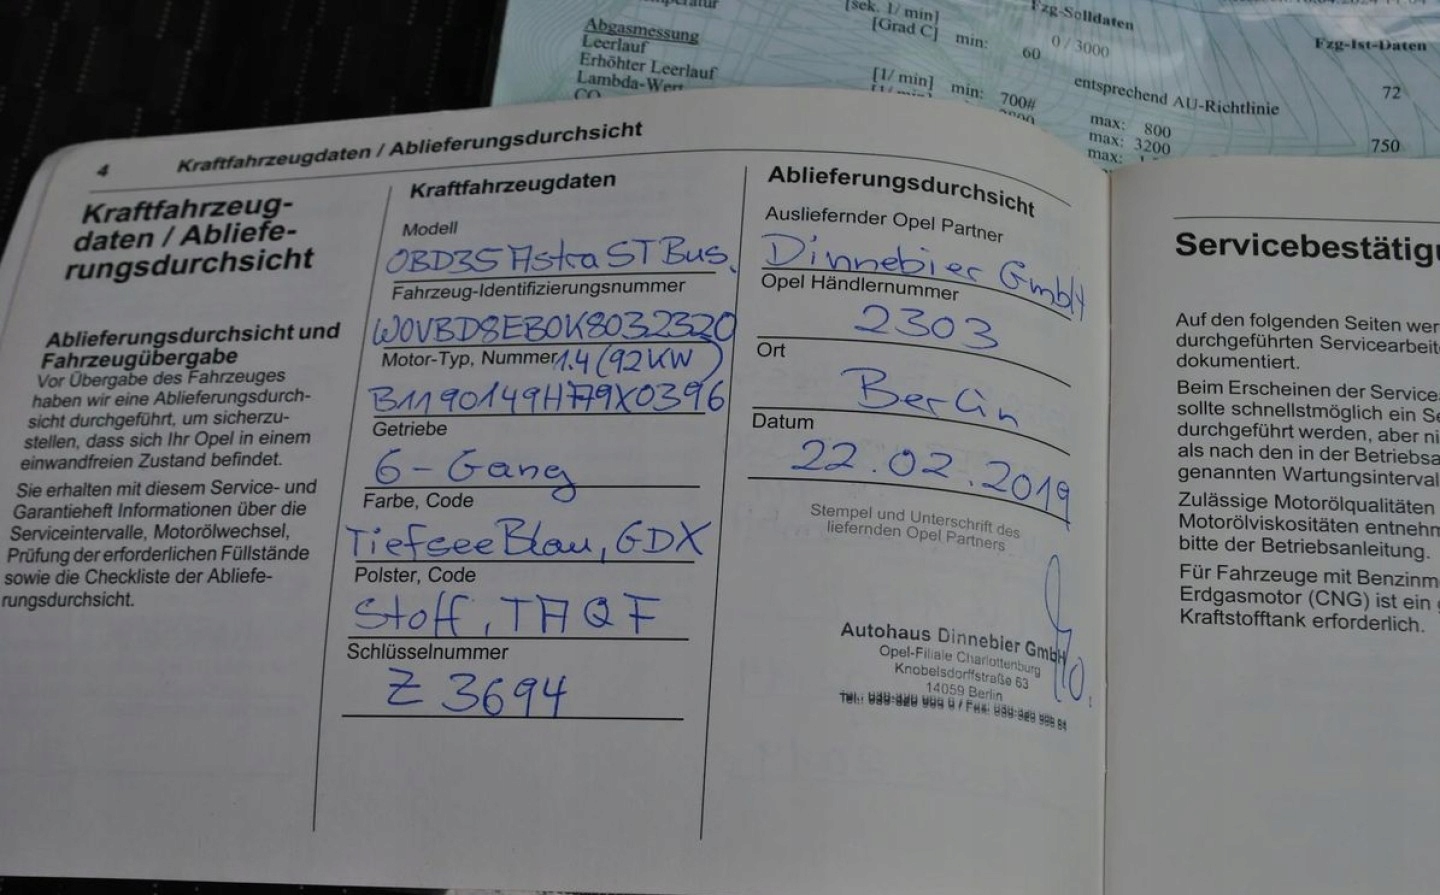 [sek. 1/ min]
[Grad C]
min:
60
Fzg-Solldaten
0 / 3000
Fzg-Ist-Daten
72
Abgasmessung
Leerlauf
Erhöhter Leerlauf
Lambda-Wert
CO
[1/ min]
min:
700#
entsprechend AU-Richtlinie
max: 800
max: 3200
max:
750
4
Kraftfahrzeugdaten / Ablieferungsdurchsicht
Kraftfahrzeug-
daten / Abliefe-
rungsdurchsicht
Ablieferungsdurchsicht und
Fahrzeugübergabe
Vor Übergabe des Fahrzeuges
haben wir eine Ablieferungsdurch-
sicht durchgeführt, um sicherzu-
stellen, dass sich Ihr Opel in einem
einwandfreien Zustand befindet.
Sie erhalten mit diesem Service- und
Garantieheft Informationen über die
Serviceintervalle, Motorölwechsel,
Prüfung der erforderlichen Füllstände
sowie die Checkliste der Abliefe-
rungsdurchsicht.
Kraftfahrzeugdaten
Modell
OBD35 Astra ST Bus.
Fahrzeug-Identifizierungsnummer
W0VBD8EB0K8032320
Motor-Typ, Nummer 1.4 (92KW)
B1190149H79X0396
Getriebe
6-Gang
Farbe, Code
Tiefsee Blau, GDX
Polster, Code
Stoff, TAQF
Schlüsselnummer
Z 3694
Ablieferungsdurchsicht
Ausliefernder Opel Partner
Dinnebier GmbH
Opel Händlernummer
2303
Ort
Berlin
Datum
22.02.2019
Stempel und Unterschrift des
liefernden Opel Partners
Autohaus Dinnebier GmbH
Opel-Filiale Charlottenburg
Knobelsdorffstraße 63
14059 Berlin
Servicebestätigu
Auf den folgenden Seiten wer
durchgeführten Servicearbeite
dokumentiert.
Beim Erscheinen der Service
sollte schnellstmöglich ein Se
durchgeführt werden, aber ni
als nach den in der Betriebsa
genannten Wartungsinterval
Zulässige Motorölqualitäten
Motorölviskositäten entnehm
bitte der Betriebsanleitung.
Für Fahrzeuge mit Benzinm
Erdgasmotor (CNG) ist ein g
Kraftstofftank erforderlich.